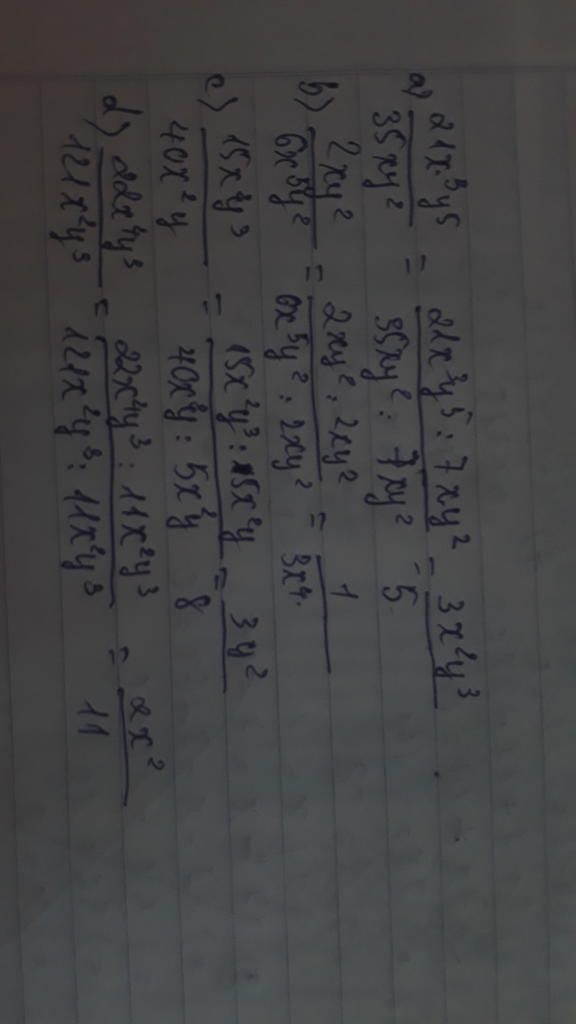 a) 21x³y⁵ / 35xy² = 21x³y⁵ : 7xy² / 35xy² : 7xy² = 3x²y³ / 5
b) 2xy² / 6x⁵y² = 2xy² : 2xy² / 6x⁵y² : 2xy² = 1 / 3x⁴.
c) 15x²y³ / 40x²y = 15x²y³ : 5x²y / 40x²y : 5x²y = 3y² / 8
d) 22x⁴y³ / 121x²y³ = 22x⁴y³ : 11x²y³ / 121x²y³ : 11x²y³ = 2x² / 11